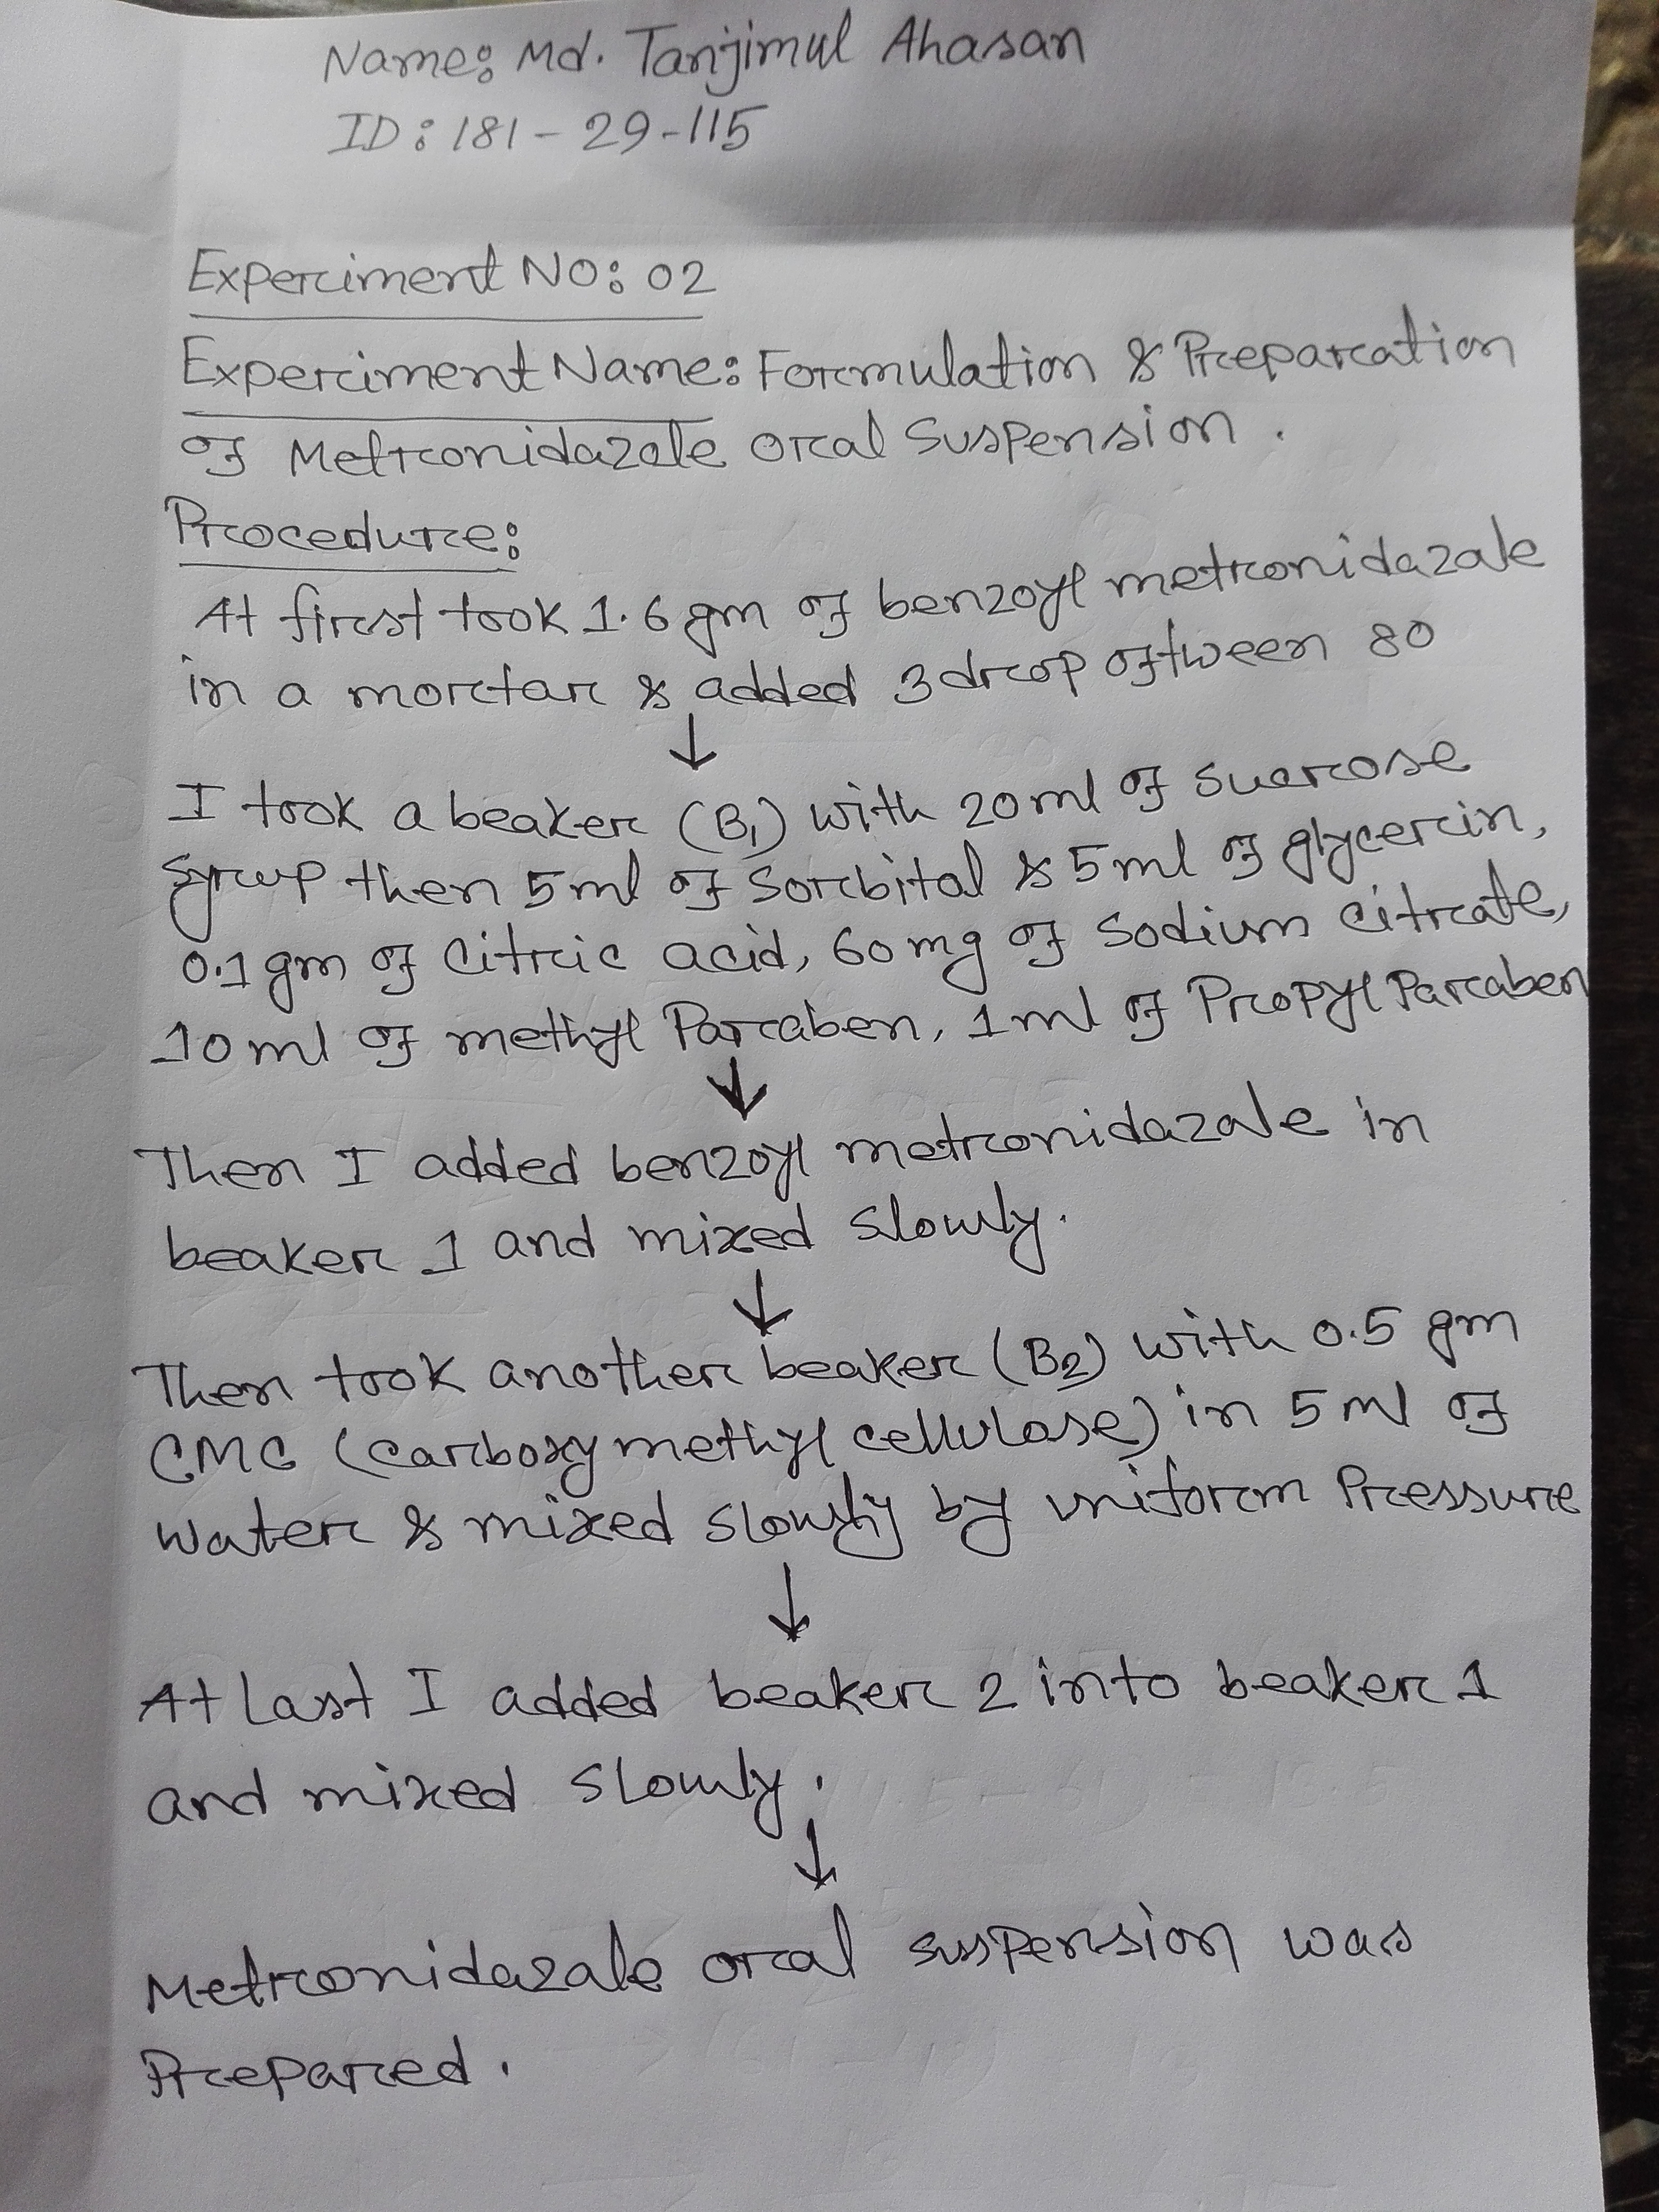 Name: Md. Tanjimul Ahasan
ID: 181-29-115
Experiment NO: 02
Experiment Name: Formulation & Preparation
of Metronidazole oral Suspension.
Procedure:
At first took 1.6 gm of benzoyl metronidazole
in a mortar & added 3 drop of tween 80
↓
I took a beaker (B1) with 20 ml of sucrose
Syrup then 5 ml of Sorbital & 5 ml of glycerin,
0.1 gm of Citric acid, 60 mg of Sodium Citrate,
10 ml of methyl Paraben, 1 ml of Propyl Paraben
↓
Then I added benzoyl metronidazole in
beaker 1 and mixed slowly.
↓
Then took another beaker (B2) with 0.5 gm
CMC (carboxy methyl cellulose) in 5 ml of
water & mixed slowly by uniform Pressure
↓
At last I added beaker 2 into beaker 1
and mixed slowly.
↓
Metronidazole oral suspension was
Prepared.